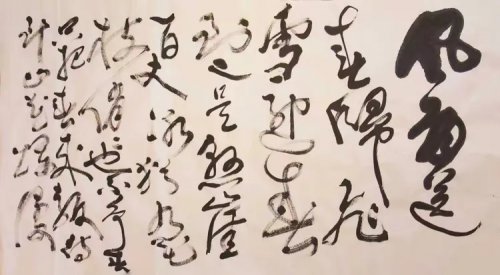 风雨送
春归飞
雪迎春
到已是悬崖
百丈冰犹有花
枝俏俏也不争春
只把春来报待
到山花烂漫